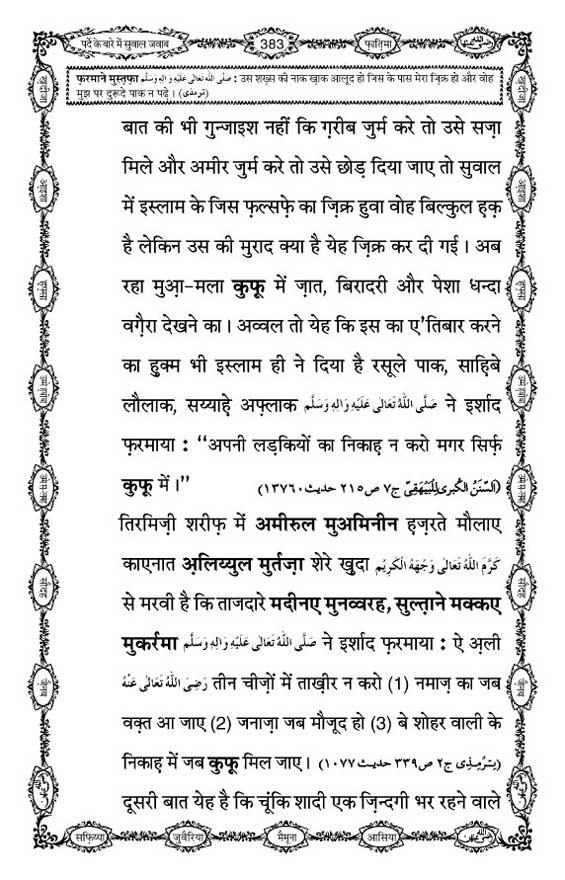 पर्दे के बारे में सुवाल जवाब
383
फ़ातिमा
फ़रमाने मुस्तफ़ा صَلَّى اللهُ تَعَالٰى عَلَيْهِ وَاٰلِهٖ وَسَلَّم : उस शख़्स की नाक ख़ाक आलूद हो जिस के पास मेरा ज़िक्र हो और वोह
मुझ पर दुरूदे पाक न पढ़े । (ترمذی)
बात की भी गुन्जाइश नहीं कि ग़रीब जुर्म करे तो उसे सज़ा
मिले और अमीर जुर्म करे तो उसे छोड़ दिया जाए तो सुवाल
में इस्लाम के जिस फ़ल्सफ़े का ज़िक्र हुवा वोह बिल्कुल ह़क़
है लेकिन उस की मुराद क्या है येह ज़िक्र कर दी गई । अब
रहा मुआ़-मला कुफ़ू में ज़ात, बिरादरी और पेशा धन्दा
वग़ैरा देखने का । अव्वल तो येह कि इस का ए'तिबार करने
का हुक्म भी इस्लाम ही ने दिया है रसूले पाक, साह़िबे
लौलाक, सय्याह़े अफ़्लाक صَلَّى اللهُ تَعَالٰى عَلَيْهِ وَاٰلِهٖ وَسَلَّم ने इर्शाद
फ़रमाया : “अपनी लड़कियों का निकाह़ न करो मगर सिर्फ़
कुफ़ू में ।” (اَلسُّنَنُ الْكُبرى لِلْبَيْهَقِىّ ج٧ ص٢١٥ حديث١٣٧٦٠)
तिरमिज़ी शरीफ़ में अमीरुल मुअमिनीन ह़ज़रते मौलाए
काएनात अ़लिय्युल मुर्तज़ा शेरे ख़ुदा كَرَّمَ اللهُ تَعَالٰى وَجْهَهُ الْكَرِيْم
से मरवी है कि ताजदारे मदीनए मुनव्वरह, सुल्त़ाने मक्कए
मुकर्रमा صَلَّى اللهُ تَعَالٰى عَلَيْهِ وَاٰلِهٖ وَسَلَّم ने इर्शाद फ़रमाया : ऐ अ़ली
رَضِىَ اللهُ تَعَالٰى عَنْهُ तीन चीज़ों में ताख़ीर न करो (1) नमाज़ का जब
वक़्त आ जाए (2) जनाज़ा जब मौजूद हो (3) बे शोहर वाली के
निकाह़ में जब कुफ़ू मिल जाए । (تِرمِذِى ج٢ ص٣٣٩ حديث١٠٧٧)
दूसरी बात येह है कि चूंकि शादी एक ज़िन्दगी भर रहने वाले
सफ़िय्या
जुवैरिया
मैमूना
आसिया